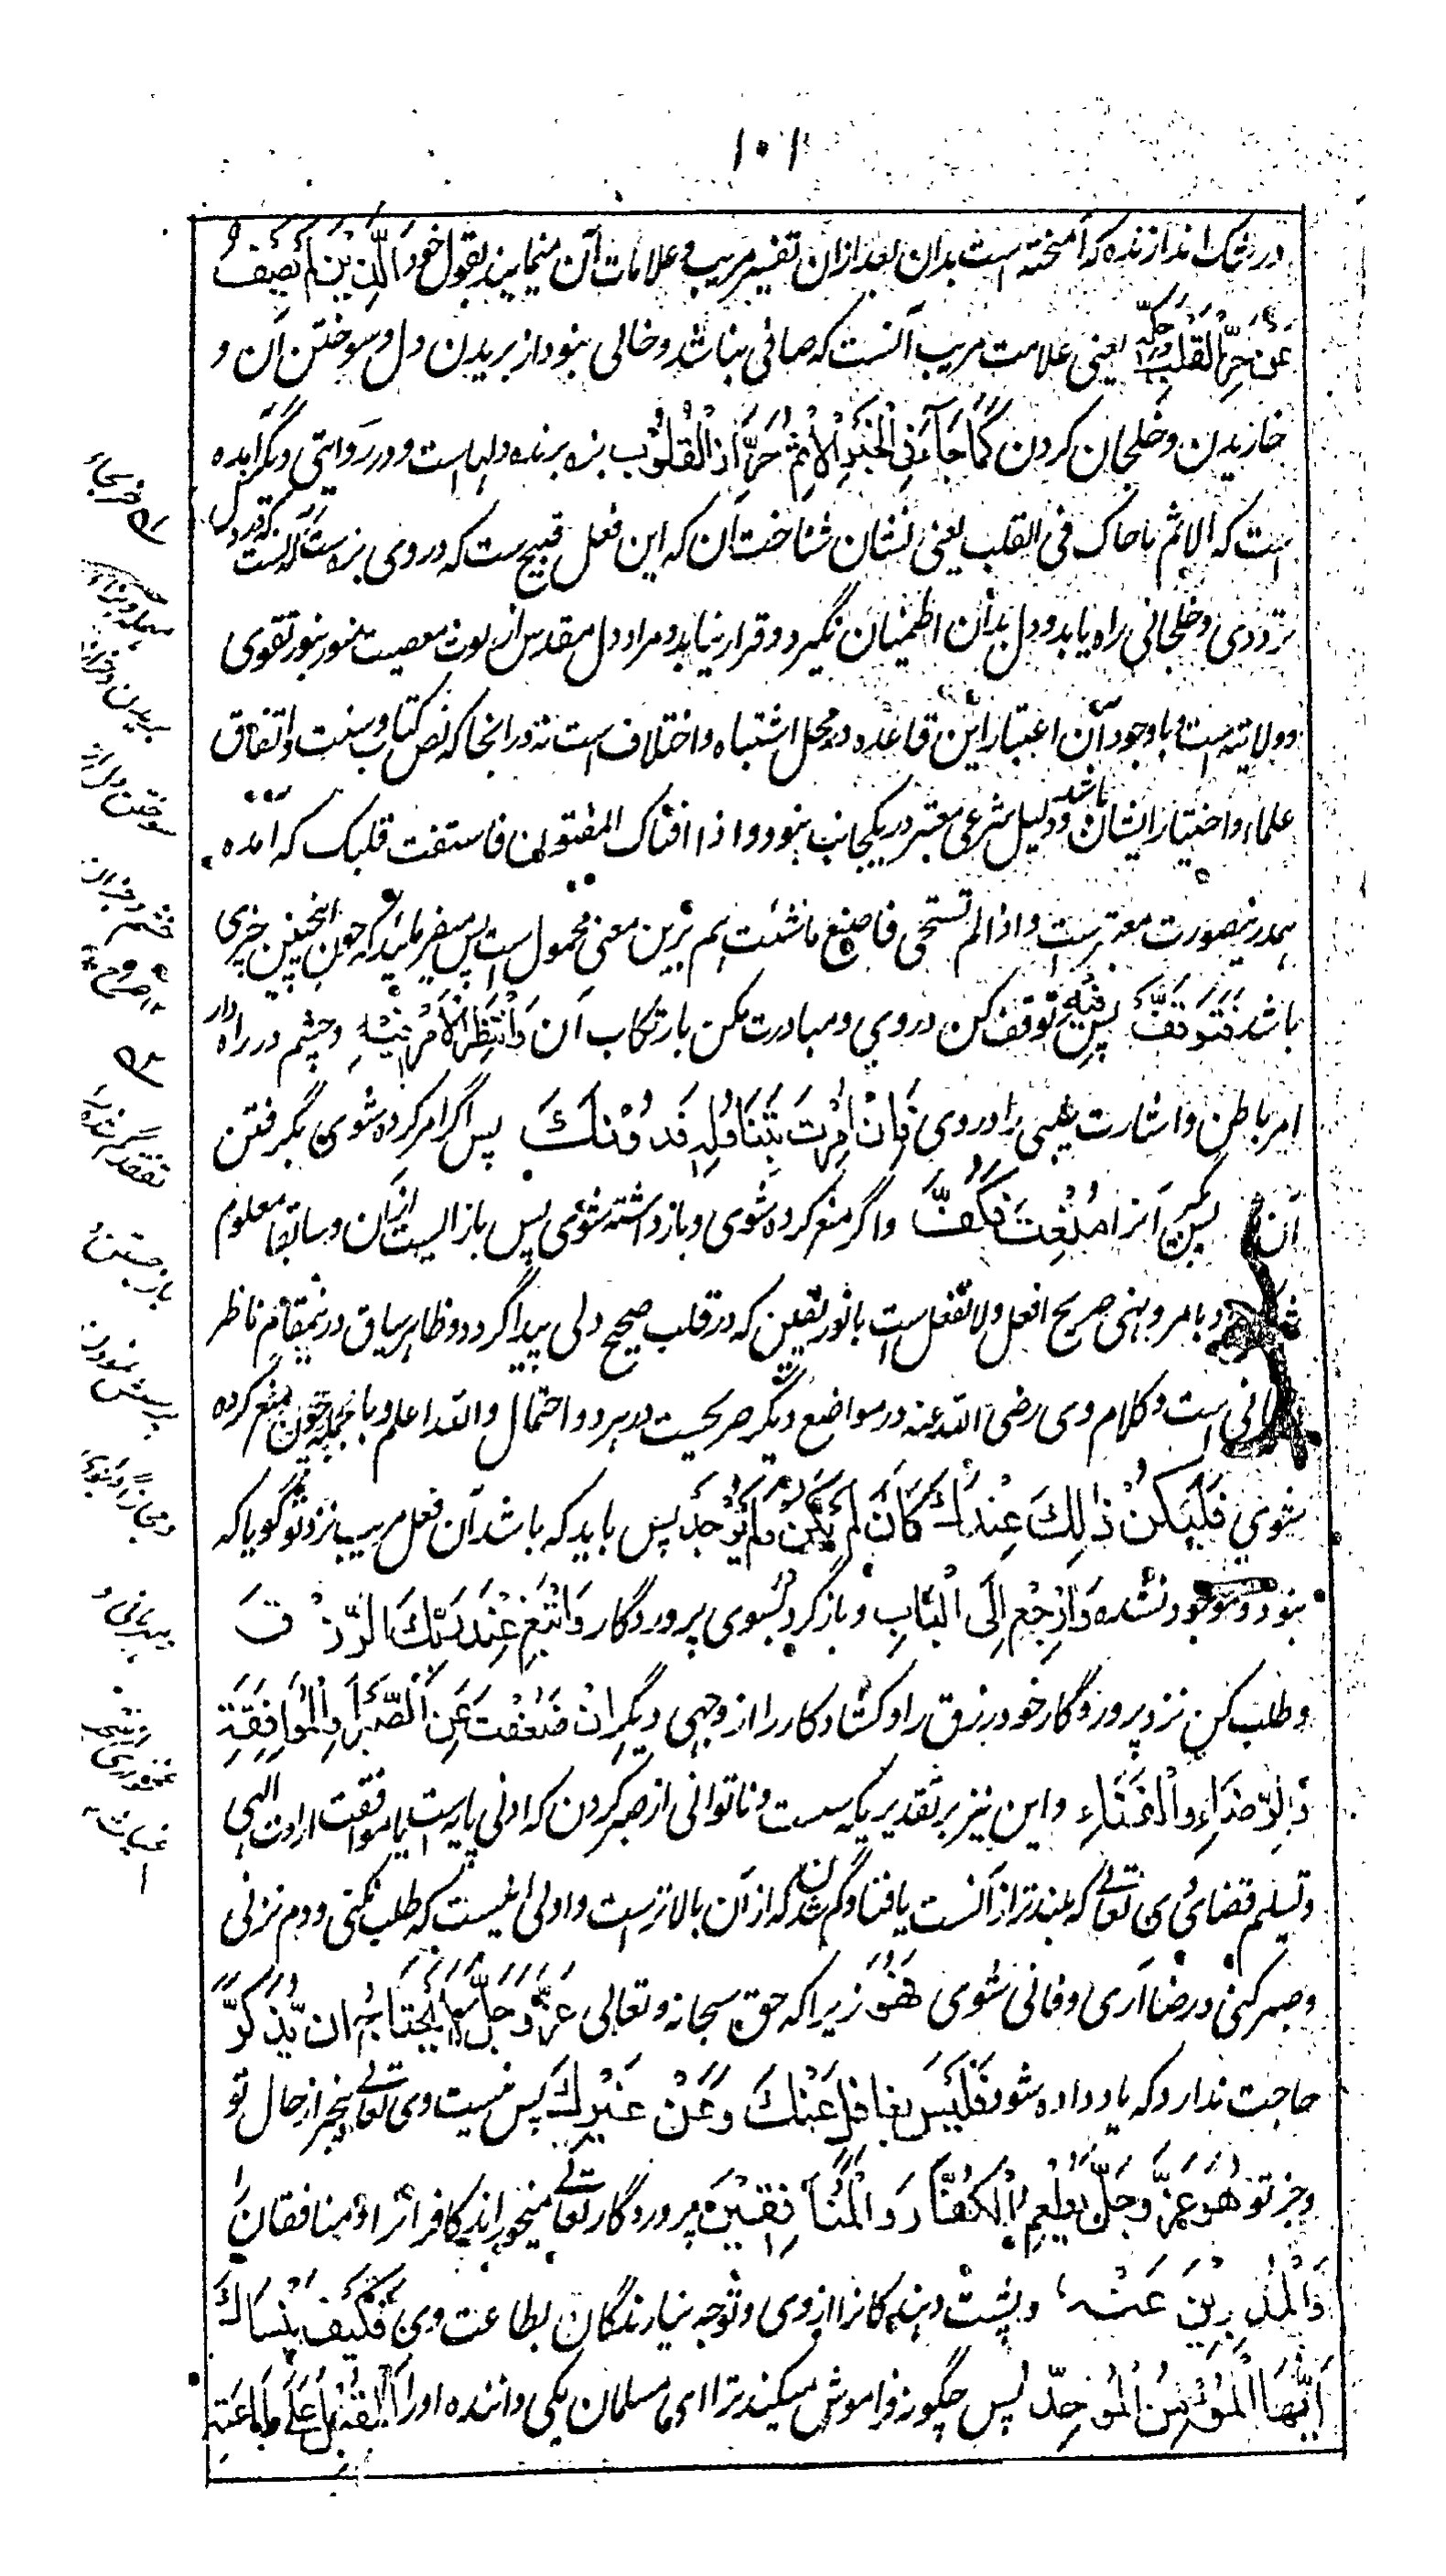 ۱۰۱
در شک اندازنده که آمیخته است بدان بعد ازان تفسیر مریب و علامات آن مینماید بقول خود اَلَّذِیْ لَمْ یَصِفْ
عَنْ حَزِّ الْقَلْبِ وَحَكِّهِ یعنی علامت مریب آنست که صافی نباشد و خالی نبود از بریدن دل و سوختن آن و
خازیدن و خلجان کردن كَمَا جَاءَ فِی الْخَبَرِ اَلْاِثْمُ حَزَّازُ الْقُلُوْبِ بزه برنده دلهاست و در روایتی دیگر آمده
است که الاثم ما حاک فی القلب یعنی نشان شناخت آن که این فعل قبیح ست که در وی بزه ست آنست که در دل
ترددی و خلجانی راه یابد و دل بدان اطمینان نگیرد و قرار نیابد و مراد دل مقدس از لوث معصیت منور بنور تقوی
و ولایته است و باوجود آن اعتبار این قاعده در محل اشتباه و اختلاف است نه در انجا که نص کتاب و سنت و اتفاق
علماء و اختیار ایشان باشد و دلیل شرعی معتبر در یکجانب نبود و اذا افتاک المفتون فاستفت قلبک که آمده
همدرینصورت معتبرست و اذا لم تستحی فاصنع ما شئت هم برین معنی محمول است پس میفرماید که چون اینچنین چیزی
باشد فَتَوَقَّفْ فِیْهِ پس توقف کن در وی و مبادرت مکن بارتکاب آن وَانْتَظِرِ الْاَمْرَ فِیْهِ و چشم در راه دار
امر باطن و اشارت غیبی را در وی فَاِنْ اُمِرْتَ بِتَنَاوُلِهِ فَدُوْنَكَ پس اگر امر کرده شوی بگرفتن
آن پس بگیر آنرا مُنِعْتَ فَكُفَّ و اگر منع کرده شوی و بازداشته شوی پس باز ایست ازان و سابقا معلوم
و بامر و نهی صریح افعل و لا تفعل است یا نور یقین که در قلب صحیح ولی پیدا گردد و ظاهر سیاق درینمقام ناظر
ست و کلام وی رضی الله عنه در مواضع دیگر صریحست در هر دو احتمال و الله اعلم و بالجمله چون منع کرده
شوی فَلْیَكُنْ ذٰلِكَ عِنْدَكَ كَاَنْ لَمْ یَكُنْ وَلَمْ یُوْجَدْ پس باید که باشد آن فعل مریب نزد تو گویا که
نبود و موجود نشده وَارْجِعْ اِلَی الْبَابِ و بازگرد بسوی پروردگار وَابْتَغِ عِنْدَ رَبِّكَ الرِّزْقَ
و طلب کن نزد پروردگار خود رزق را و کشاد کار را از وجهی دیگر اِنْ ضَعُفْتَ عَنِ الصَّبْرِ اَوِ الْمُوَافَقَةِ
اَوِ الرِّضَاءِ وَالْفَنَاءِ و این نیز بر تقدیریکه سست و ناتوانی از صبر کردن که ادنی پایه است یا موافقت ارادت الهی
و تسلیم قضای وی تعالی که بلندتر از آنست یا فنا و گم شدن که از آن بالاترست و اولی اینست که طلب نکنی و دم نزنی
و صبر کنی و رضا آری و فانی شوی فَهُوَ زیراکه حق سبحانه و تعالی عَزَّ وَجَلَّ لَا یَحْتَاجُ اَنْ یُذَكَّرَ
حاجت ندارد که یاد داده شود فَلَیْسَ بِغَافِلٍ عَنْكَ وَعَنْ غَیْرِكَ پس نیست وی تعالی بیخبر از حال تو
و جز تو هُوَ عَزَّ وَجَلَّ یُطْعِمُ الْكُفَّارَ وَالْمُنَافِقِیْنَ پروردگار تعالی میخوراند کافرانرا و منافقانرا
وَالْمُدْبِرِیْنَ عَنْهُ و پشت دهندگانرا از وی و توجه نیارندگان بطاعت وی فَكَیْفَ یَنْسَاكَ
اَیُّهَا الْمُؤْمِنُ الْمُوَحِّدُ پس چگونه فراموش میکند ترا ای مسلمان یکی داننده او را اَلْمُقْبِلُ عَلٰی طَاعَتِهِ
بریدن
سوختن دل
تفقد
باز جستن
پرسش نمودن
مهربانی و
غمخوری
غیاث